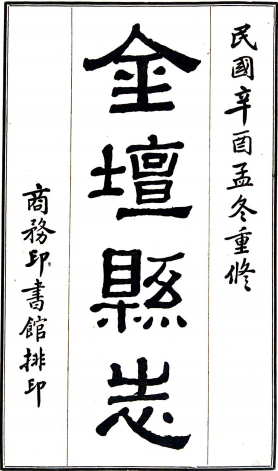 民國辛酉孟冬重修
金壇縣志
商務印書館排印